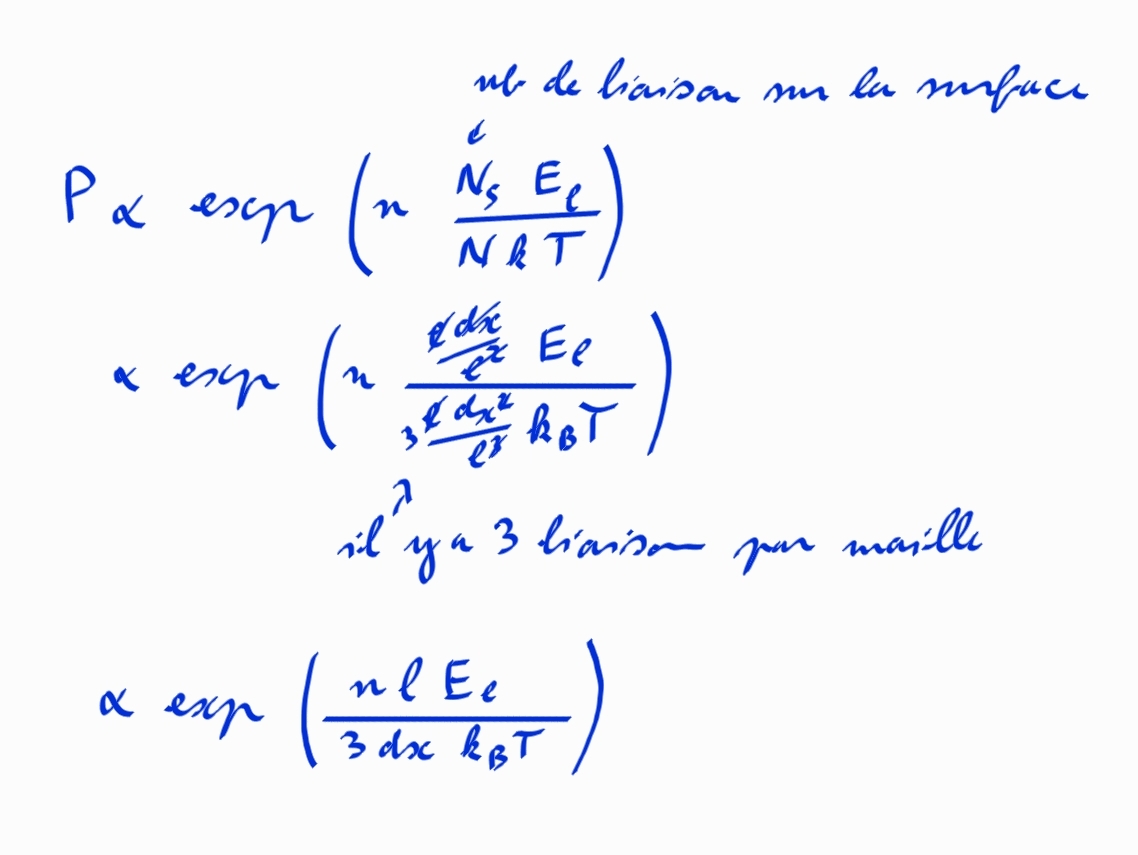 nb de liaison sur la surface
P ∝ exp ( n N_s E_l / N k T )
∝ exp ( n (l dx / l²) E_l / 3 (l dx² / l³) k_B T )
il y a 3 liaison par maille
∝ exp ( n l E_l / 3 dx k_B T )